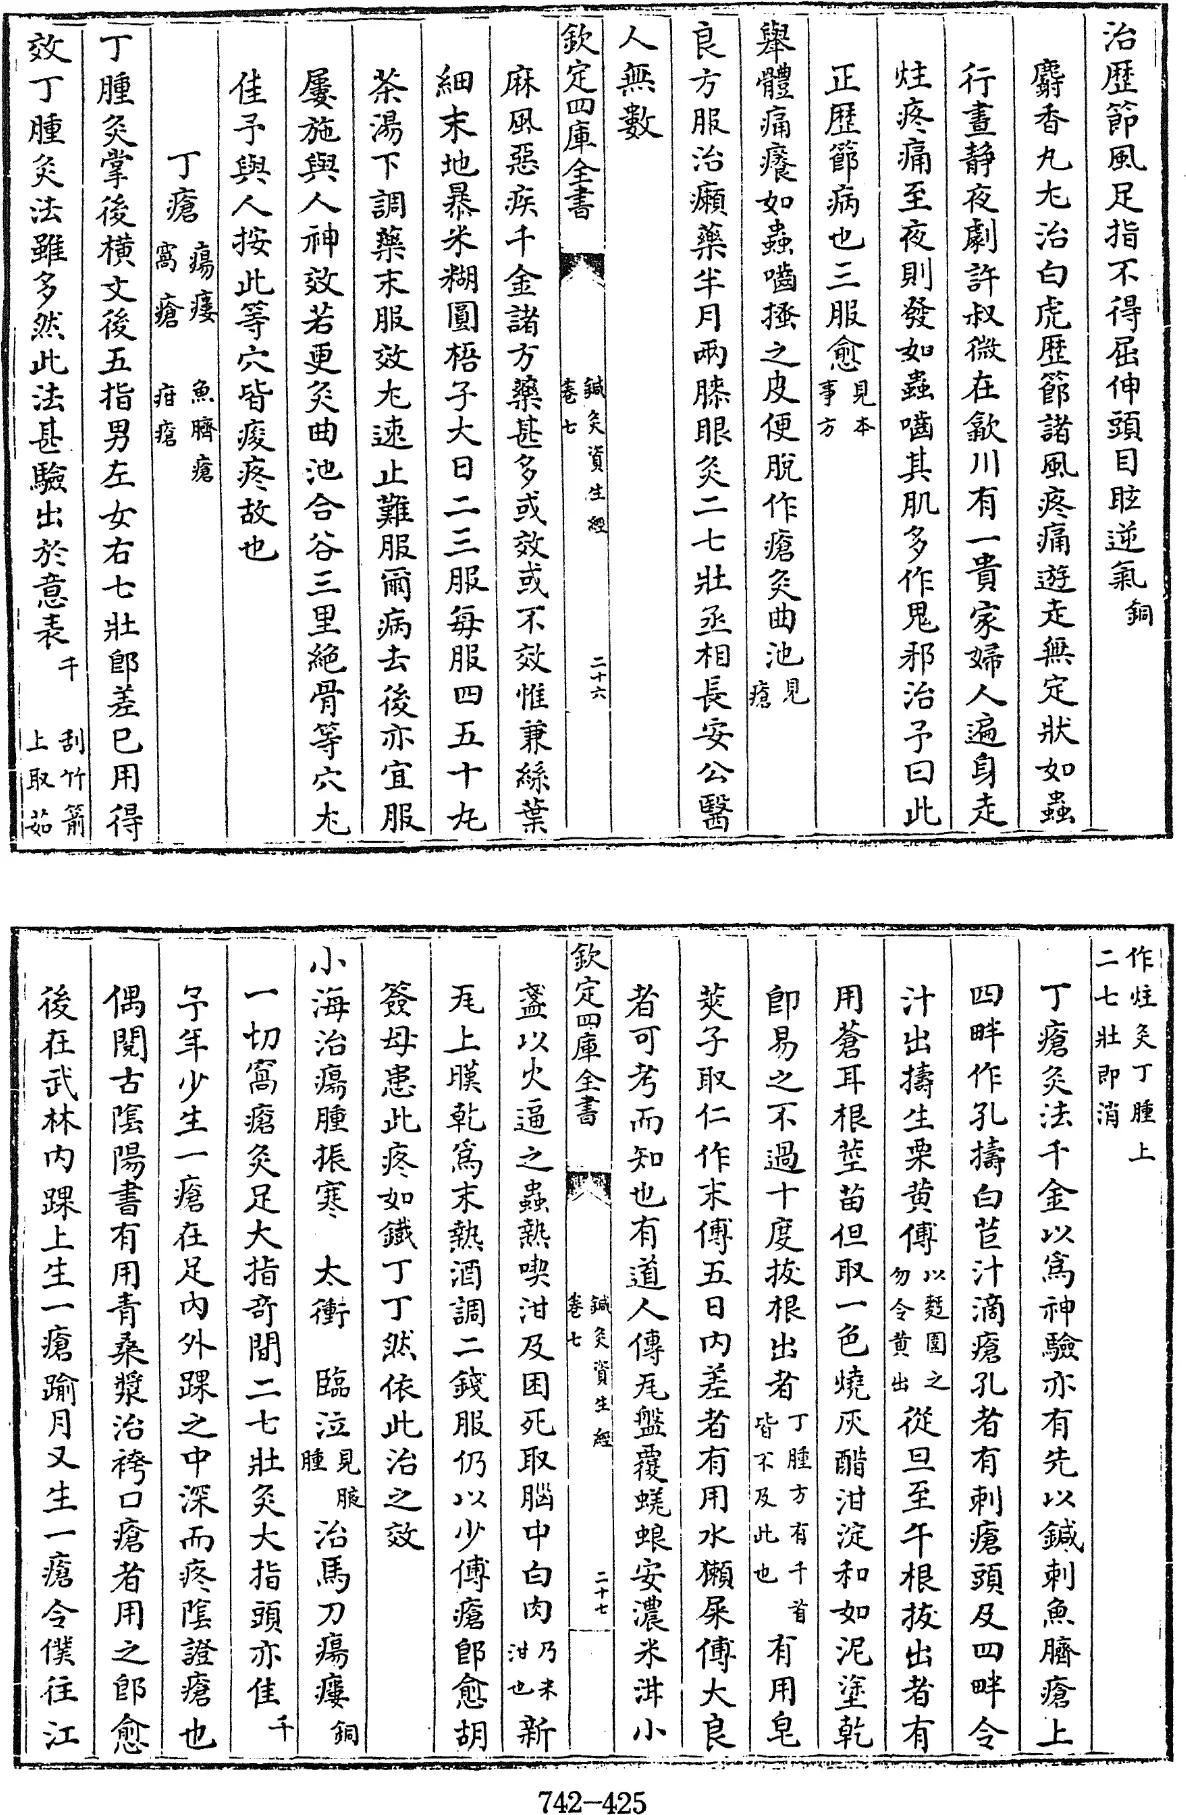 治歴節風足指不得屈伸頭目眩逆氣銅
麝香丸尤治白虎歴節諸風疼痛遊走無定狀如蟲
行晝静夜劇許叔微在歙川有一貴家婦人遍身走
炷疼痛至夜則發如蟲嚙其肌多作鬼邪治予曰此
正歴節病也三服愈見本事方
舉體痛癢如蟲嚙搔之皮便脫作瘡灸曲池見瘡
良方服治癩藥半月兩膝眼灸二七壯丞相長安公醫
人無數
欽定四庫全書
鍼灸資生經
卷七
二十六
麻風惡疾千金諸方藥甚多或效或不效惟兼絲葉
細末地暴米糊圓梧子大日二三服每服四五十丸
茶湯下調藥末服效尤速止難服爾病去後亦宜服
屢施與人神效若更灸曲池合谷三里絶骨等穴尤
佳予與人按此等穴皆痠疼故也
丁瘡瘍瘻魚臍瘡窩瘡疳瘡
丁腫灸掌後横文後五指男左女右七壯即差已用得
效丁腫灸法雖多然此法甚驗出於意表千刮竹箭上取茹
作炷灸丁腫上二七壯即消
丁瘡灸法千金以為神驗亦有先以鍼刺魚臍瘡上
四畔作孔擣白苣汁滴瘡孔者有刺瘡頭及四畔令
汁出擣生栗黄傅以麪圍之勿令黄出從旦至午根拔出者有
用蒼耳根莖苗但取一色燒灰醋泔淀和如泥塗乾
即易之不過十度拔根出者丁腫方有千首皆不及此也有用皂
莢子取仁作末傅五日内差者有用水獺屎傅大良
者可考而知也有道人傳瓦盤覆蜣蜋安濃米泔小
欽定四庫全書
鍼灸資生經
卷七
二十七
盞以火逼之蟲熱喫泔及困死取腦中白肉乃米泔也新
瓦上膜乾為末熱酒調二錢服仍以少傅瘡即愈胡
簽母患此疼如鐵丁丁然依此治之效
小海治瘍腫振寒 太衝 臨泣見腋腫治馬刀瘍瘻銅
一切窩瘡灸足大指奇間二七壯灸大指頭亦佳千
予年少生一瘡在足内外踝之中深而疼隂證瘡也
偶閱古隂陽書有用青桑漿治袴口瘡者用之即愈
後在武林内踝上生一瘡踰月又生一瘡令僕往江
742-425